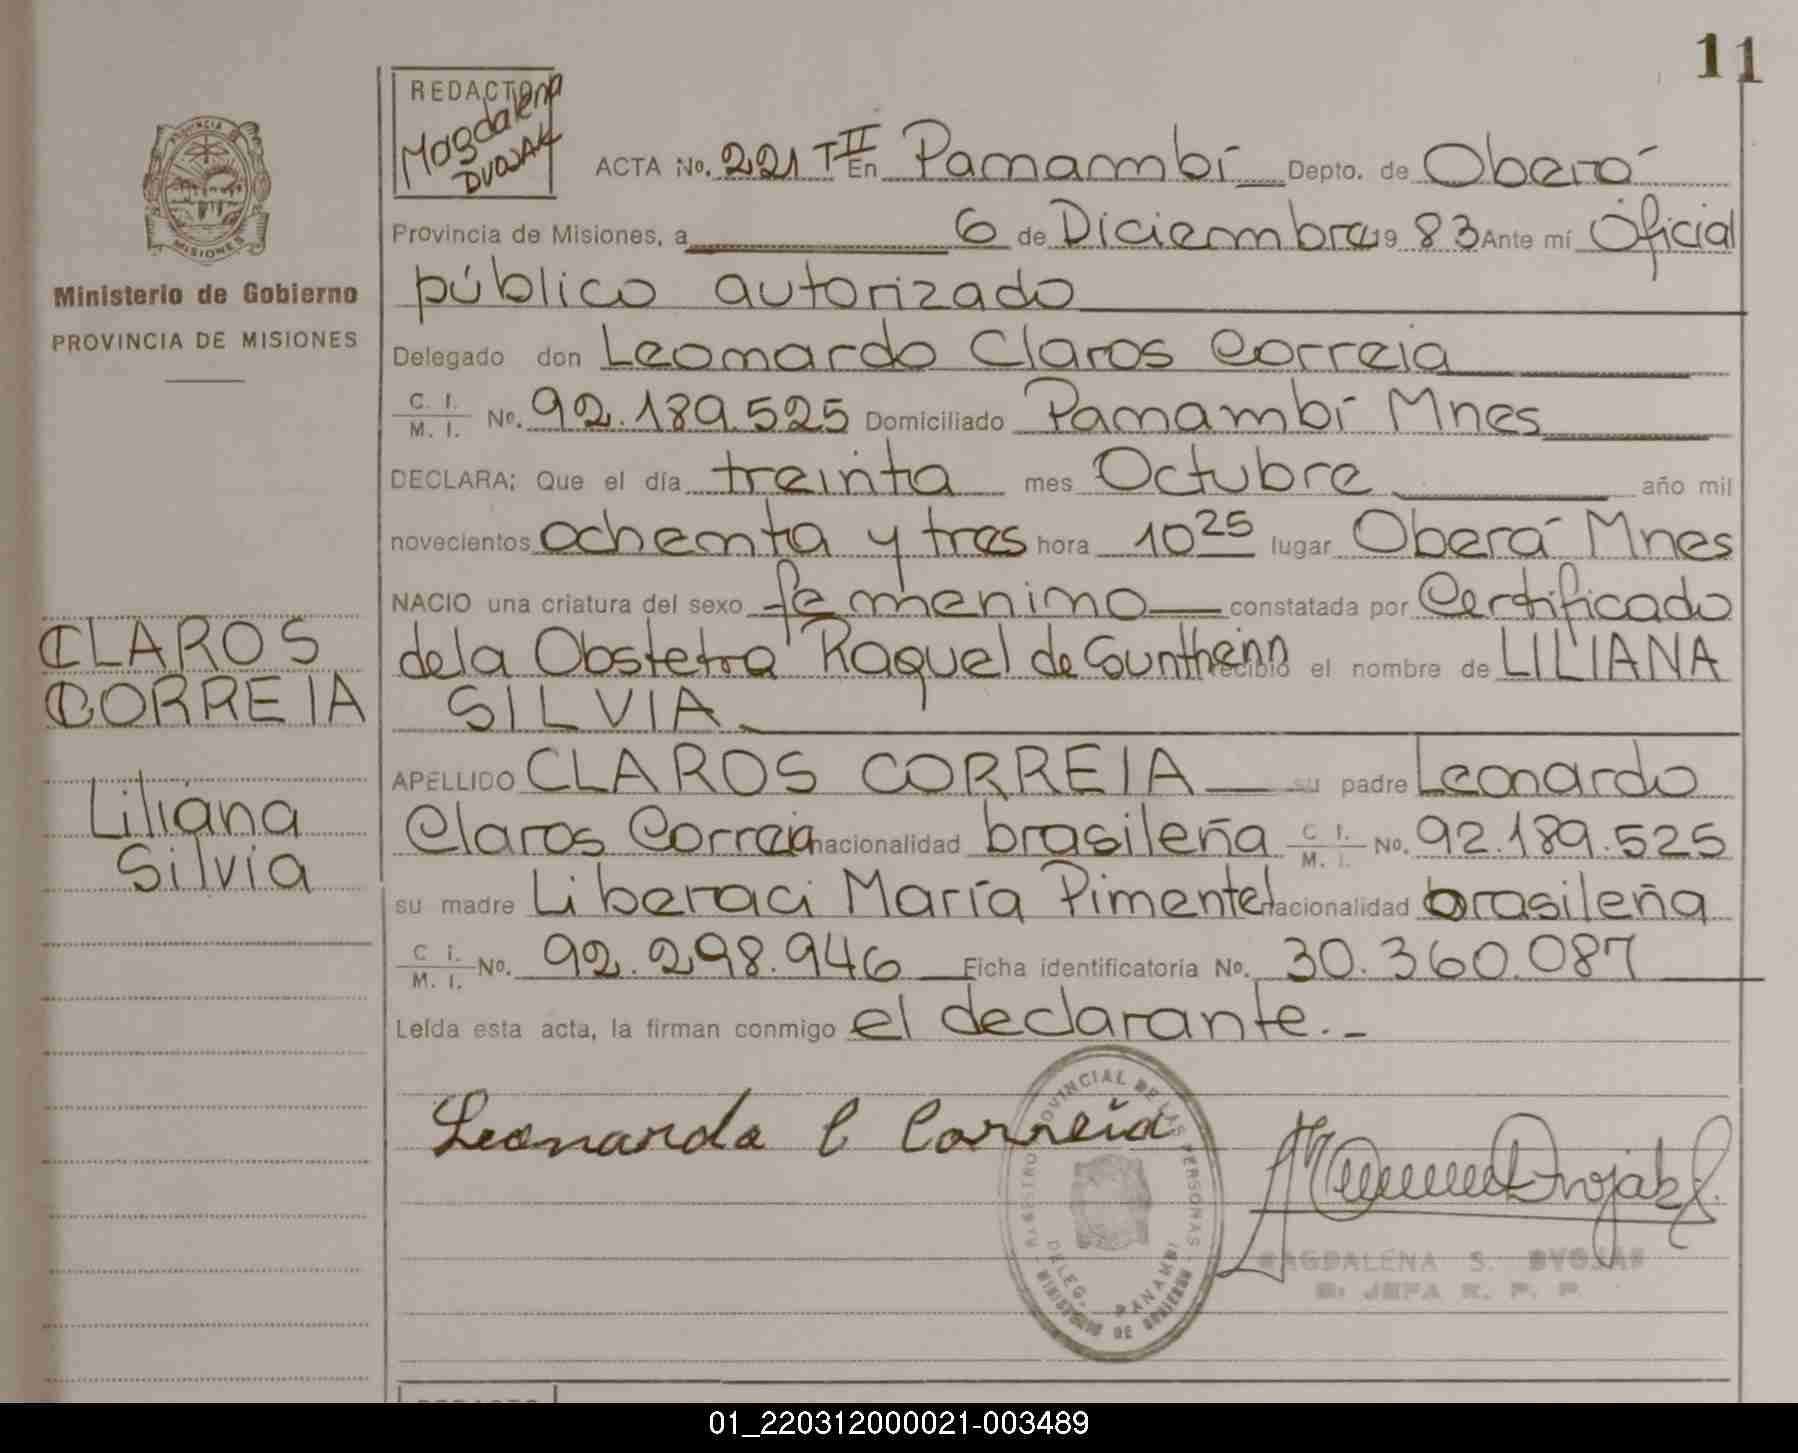 11
REDACTO
Magdalena
DVOJAK
PROVINCIA DE
MISIONES
Ministerio de Gobierno
PROVINCIA DE MISIONES
CLAROS
CORREIA
Liliana
Silvia
ACTA No. 221 TII En Panambí Depto. de Oberá
Provincia de Misiones, a 6 de Diciembre 19 83 Ante mí Oficial
público autorizado
Delegado don Leonardo Claros Correia
C. I. / M. I. No. 92.189.525 Domiciliado Panambí Mnes
DECLARA: Que el día treinta mes Octubre año mil
novecientos ochenta y tres hora 10 25 lugar Oberá Mnes
NACIO una criatura del sexo femenino constatada por Certificado
de la Obstetra Raquel de Gunthenn recibió el nombre de LILIANA
SILVIA
APELLIDO CLAROS CORREIA su padre Leonardo
Claros Correia nacionalidad brasileña C. I. / M. I. No. 92.189.525
su madre Liberaci María Pimentel nacionalidad brasileña
C. I. / M. I. No. 92.298.946 Ficha identificatoria No. 30.360.087
Leída esta acta, la firman conmigo el declarante.-
Leonardo C Correia
REGISTRO PROVINCIAL DE LAS PERSONAS
DELEG. PANAMBI
MINISTERIO DE GOBIERNO
MAGDALENA S. DVOJAK
JEFA R. P. P.
REDACTO
01_220312000021-003489